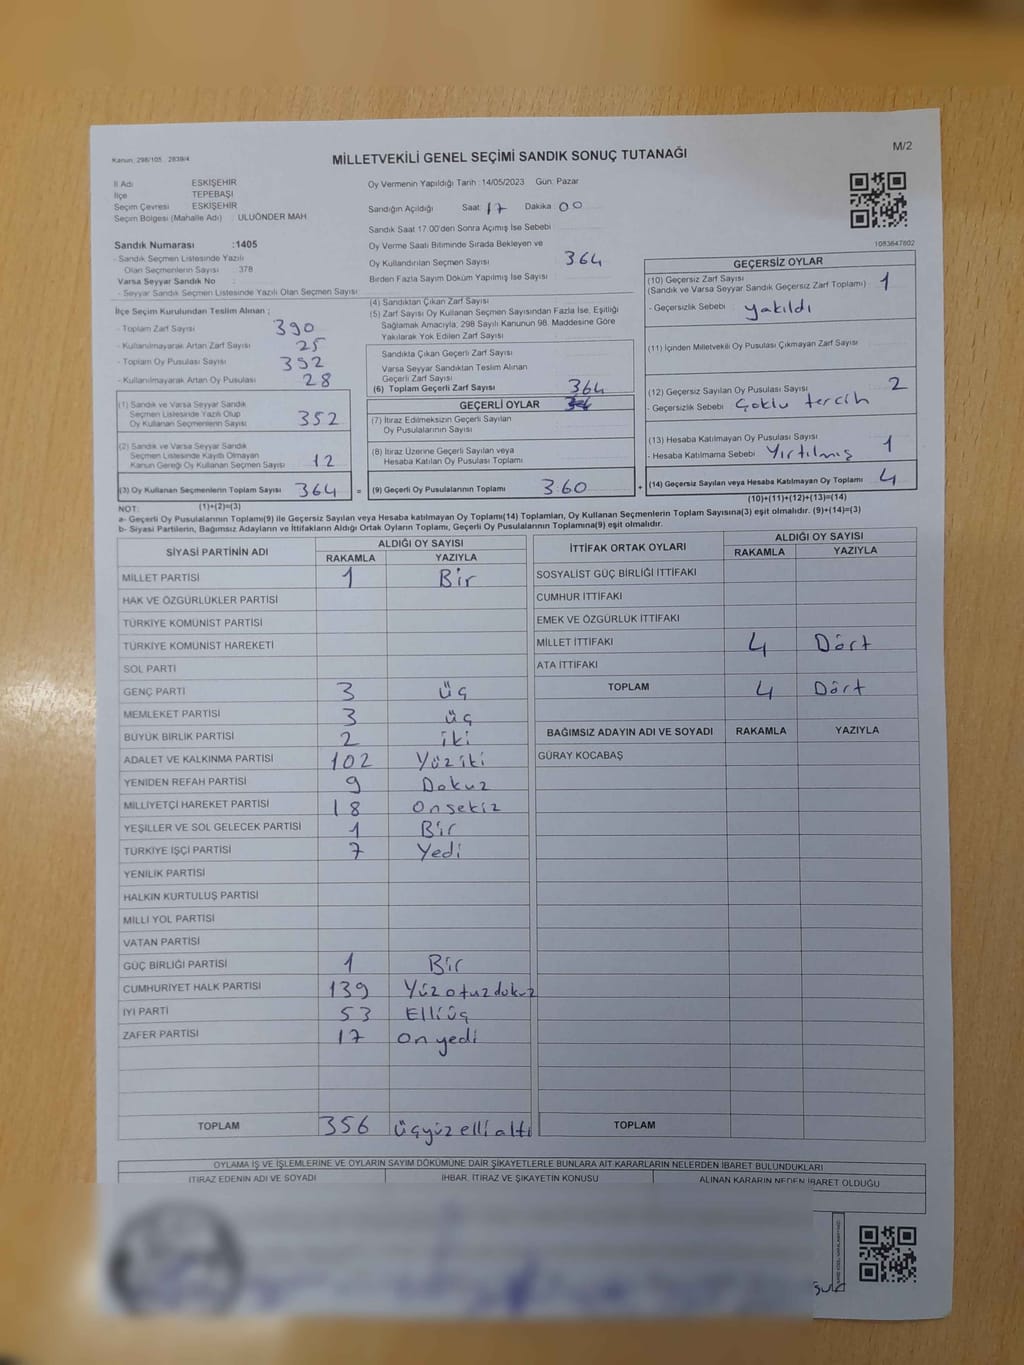 Kanun: 298/105, 2839/4
MİLLETVEKİLİ GENEL SEÇİMİ SANDIK SONUÇ TUTANAĞI
M/2
İl Adı : ESKİŞEHİR
İlçe : TEPEBAŞI
Seçim Çevresi : ESKİŞEHİR
Seçim Bölgesi (Mahalle Adı) : ULUÖNDER MAH
Oy Vermenin Yapıldığı Tarih : 14/05/2023 Gün: Pazar
Sandığın Açıldığı Saat: 17 Dakika: 00
Sandık Saat 17.00'den Sonra Açılmış İse Sebebi
Oy Verme Saati Bitiminde Sırada Bekleyen ve
Oy Kullandırılan Seçmen Sayısı 364
Birden Fazla Sayım Döküm Yapılmış İse Sayısı
1083647802
Sandık Numarası :1405
- Sandık Seçmen Listesinde Yazılı
Olan Seçmenlerin Sayısı : 378
Varsa Seyyar Sandık No :
- Seyyar Sandık Seçmen Listesinde Yazılı Olan Seçmen Sayısı
İlçe Seçim Kurulundan Teslim Alınan :
- Toplam Zarf Sayısı 390
- Kullanılmayarak Artan Zarf Sayısı 25
- Toplam Oy Pusulası Sayısı 392
- Kullanılmayarak Artan Oy Pusulası 28
(1) Sandık ve Varsa Seyyar Sandık
Seçmen Listesinde Yazılı Olup
Oy Kullanan Seçmenlerin Sayısı 352
(2) Sandık ve Varsa Seyyar Sandık
Seçmen Listesinde Kayıtlı Olmayan
Kanun Gereği Oy Kullanan Seçmen Sayısı 12
(3) Oy Kullanan Seçmenlerin Toplam Sayısı 364 =
(4) Sandıktan Çıkan Zarf Sayısı
(5) Zarf Sayısı Oy Kullanan Seçmen Sayısından Fazla İse, Eşitliği
Sağlamak Amacıyla; 298 Sayılı Kanunun 98. Maddesine Göre
Yakılarak Yok Edilen Zarf Sayısı
Sandıkta Çıkan Geçerli Zarf Sayısı
Varsa Seyyar Sandıktan Teslim Alınan
Geçerli Zarf Sayısı
(6) Toplam Geçerli Zarf Sayısı 364
GEÇERLİ OYLAR
(7) İtiraz Edilmeksizin Geçerli Sayılan
Oy Pusulalarının Sayısı
(8) İtiraz Üzerine Geçerli Sayılan veya
Hesaba Katılan Oy Pusulası Toplamı
(9) Geçerli Oy Pusulalarının Toplamı 360 +
GEÇERSİZ OYLAR
(10) Geçersiz Zarf Sayısı 1
(Sandık ve Varsa Seyyar Sandık Geçersiz Zarf Toplamı)
- Geçersizlik Sebebi : yakıldı
(11) İçinden Milletvekili Oy Pusulası Çıkmayan Zarf Sayısı
(12) Geçersiz Sayılan Oy Pusulası Sayısı 2
- Geçersizlik Sebebi Çoklu tercih
(13) Hesaba Katılmayan Oy Pusulası Sayısı 1
- Hesaba Katılmama Sebebi Yırtılmış
(14) Geçersiz Sayılan veya Hesaba Katılmayan Oy Toplamı 4
NOT: (1)+(2)=(3)
(10)+(11)+(12)+(13)=(14)
a- Geçerli Oy Pusulalarının Toplamı(9) ile Geçersiz Sayılan veya Hesaba Katılmayan Oy Toplamı(14) Toplamları, Oy Kullanan Seçmenlerin Toplam Sayısına(3) eşit olmalıdır. (9)+(14)=(3)
b- Siyasi Partilerin, Bağımsız Adayların ve İttifakların Aldığı Ortak Oyların Toplamı, Geçerli Oy Pusulalarının Toplamına(9) eşit olmalıdır.
SİYASİ PARTİNİN ADI ALDIĞI OY SAYISI
RAKAMLA YAZIYLA
MİLLET PARTİSİ 1 Bir
HAK VE ÖZGÜRLÜKLER PARTİSİ
TÜRKİYE KOMÜNİST PARTİSİ
TÜRKİYE KOMÜNİST HAREKETİ
SOL PARTİ
GENÇ PARTİ 3 üç
MEMLEKET PARTİSİ 3 üç
BÜYÜK BİRLİK PARTİSİ 2 iki
ADALET VE KALKINMA PARTİSİ 102 Yüziki
YENİDEN REFAH PARTİSİ 9 Dokuz
MİLLİYETÇİ HAREKET PARTİSİ 18 Onsekiz
YEŞİLLER VE SOL GELECEK PARTİSİ 1 Bir
TÜRKİYE İŞÇİ PARTİSİ 7 Yedi
YENİLİK PARTİSİ
HALKIN KURTULUŞ PARTİSİ
MİLLİ YOL PARTİSİ
VATAN PARTİSİ
GÜÇ BİRLİĞİ PARTİSİ 1 Bir
CUMHURİYET HALK PARTİSİ 139 Yüzotuzdokuz
İYİ PARTİ 53 Elliüç
ZAFER PARTİSİ 17 On yedi
TOPLAM 356 üçyüzellialtı
İTTİFAK ORTAK OYLARI ALDIĞI OY SAYISI
RAKAMLA YAZIYLA
SOSYALİST GÜÇ BİRLİĞİ İTTİFAKI
CUMHUR İTTİFAKI
EMEK VE ÖZGÜRLÜK İTTİFAKI
MİLLET İTTİFAKI 4 Dört
ATA İTTİFAKI
TOPLAM 4 Dört
BAĞIMSIZ ADAYIN ADI VE SOYADI RAKAMLA YAZIYLA
GÜRAY KOCABAŞ
TOPLAM
OYLAMA İŞ VE İŞLEMLERİNE VE OYLARIN SAYIM DÖKÜMÜNE DAİR ŞİKAYETLERLE BUNLARA AİT KARARLARIN NELERDEN İBARET BULUNDUKLARI
İTİRAZ EDENİN ADI VE SOYADI İHBAR, İTİRAZ VE ŞİKAYETİN KONUSU ALINAN KARARIN NEDEN İBARET OLDUĞU